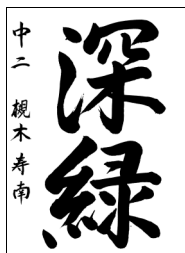 深緑
中二 槻木寿南